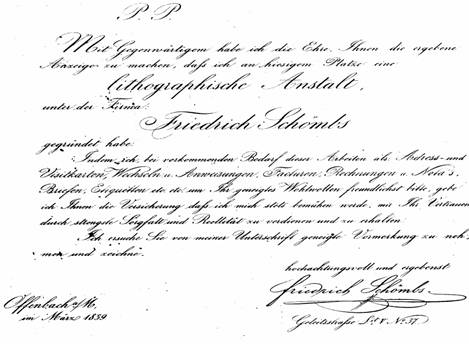 P. P.
Mit Gegenwärtigem habe ich die Ehre, Ihnen die ergebene
Anzeige zu machen, dass ich am hiesigem Platze eine
lithographische Anstalt,
unter der Firma:
Friedrich Schömbs
gegründet habe.
Indem ich, bei vorkommenden Bedarf dieser Arbeiten als Adress- und
Visitkarten, Wechseln u. Anweisungen, Facturen, Rechnungen u. Nota's,
Briefen, Etiquetten etc etc um Ihr geneigtes Wohlwollen freundlichst bitte, gebe
ich Ihnen die Versicherung dass ich mich stets bemühen werde, mir Ihr Vertrauen
durch strengste Sorgfalt und Reellität zu verdienen und zu erhalten.
Ich ersuche Sie von meiner Unterschrift geneigte Vormerkung zu neh-
men und zeichne.
hochachtungsvoll und ergebenst
Friedrich Schömbs
Offenbach a/M.
im März 1839
Geleitsstrasse No. 37.